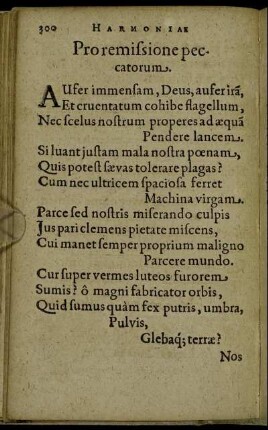 300 HARMONIAE
Pro remiſsione pec-
catorum.
AUfer immenſam, Deus, aufer irã,
Et cruentatum cohibe flagellum,
Nec ſcelus noſtrum properes ad æquã
Pendere lancem.
Si luant juſtam mala noſtra pœnam,
Quis poteſt ſævas tolerare plagas?
Cum nec ultricem ſpacioſa ferret
Machina virgam.
Parce ſed noſtris miſerando culpis
Jus pari clemens pietate miſcens,
Cui manet ſemper proprium maligno
Parcere mundo.
Cur ſuper vermes luteos furorem
Sumis? ô magni fabricator orbis,
Quid ſumus quàm fex putris, umbra,
Pulvis,
Glebaq́; terræ?
Nos